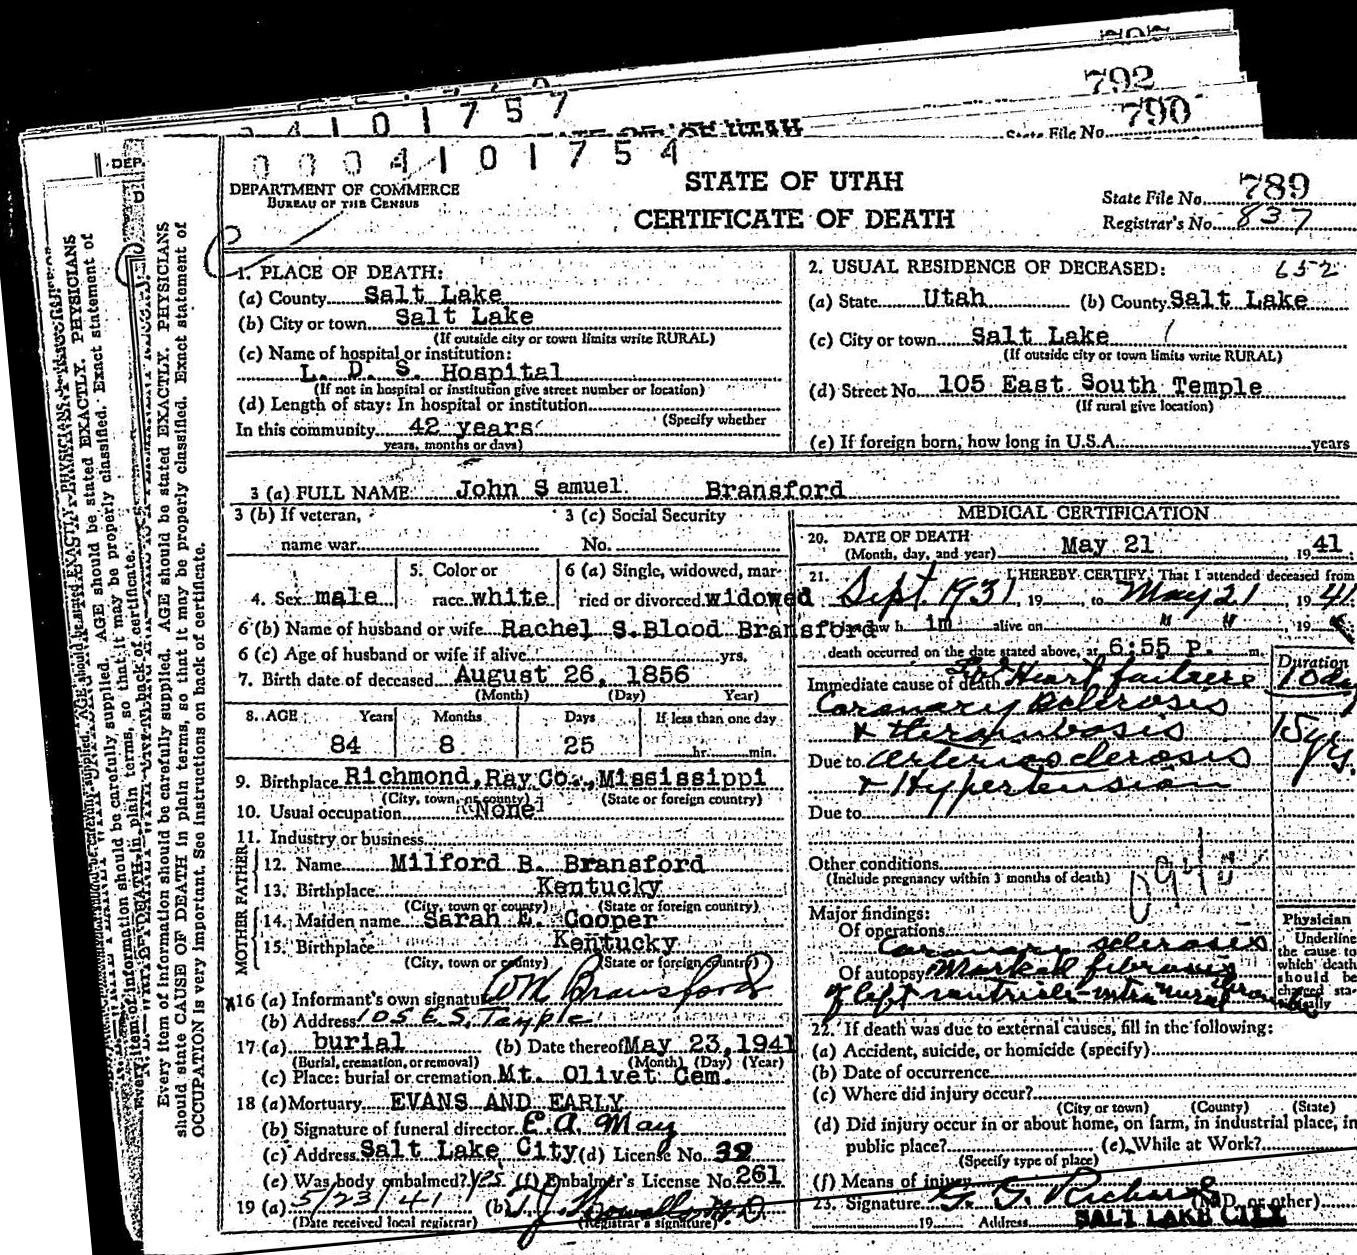 797
792
790
State File No.
4 1 0 1 7 5 7
STATE OF UTAH
0 0 0 4 1 0 1 7 5 4
DEPARTMENT OF COMMERCE
BUREAU OF THE CENSUS
STATE OF UTAH
CERTIFICATE OF DEATH
State File No. 789
Registrar's No. 837
Every item of information should be carefully supplied. AGE should be stated EXACTLY. PHYSICIANS
should state CAUSE OF DEATH in plain terms, so that it may be properly classified. Exact statement of
OCCUPATION is very important. See instructions on back of certificate.
1. PLACE OF DEATH:
(a) County Salt Lake
(b) City or town Salt Lake
(If outside city or town limits write RURAL)
(c) Name of hospital or institution:
L. D. S. Hospital
(If not in hospital or institution give street number or location)
(d) Length of stay: In hospital or institution
(Specify whether
In this community 42 years
years, months or days)
2. USUAL RESIDENCE OF DECEASED: 652
(a) State Utah (b) County Salt Lake
(c) City or town Salt Lake
(If outside city or town limits write RURAL)
(d) Street No. 105 East South Temple
(If rural give location)
(e) If foreign born, how long in U.S.A. years
3 (a) FULL NAME John Samuel Bransford
3 (b) If veteran,
name war
3 (c) Social Security
No.
4. Sex male
5. Color or
race white
6 (a) Single, widowed, mar-
ried or divorced widowed
6 (b) Name of husband or wife Rachel S. Blood Bransford
6 (c) Age of husband or wife if alive yrs.
7. Birth date of deceased August 26, 1856
(Month) (Day) Year)
8. AGE Years Months Days If less than one day
84 8 25 hr. min.
9. Birthplace Richmond, Ray Co., Mississippi
(City, town, or county) (State or foreign country)
10. Usual occupation None
11. Industry or business
FATHER
12. Name Milford B. Bransford
13. Birthplace Kentucky
(City, town or county) (State or foreign country)
MOTHER
14. Maiden name Sarah E. Cooper
15. Birthplace Kentucky
(City, town or county) (State or foreign country)
x16 (a) Informant's own signature WM Bransford
(b) Address 105 E. S. Temple
17 (a) burial (b) Date thereof May 23, 1941
(Burial, cremation, or removal) (Month) (Day) (Year)
(c) Place: burial or cremation Mt. Olivet Cem.
18 (a) Mortuary EVANS AND EARLY
(b) Signature of funeral director E. A. May
(c) Address Salt Lake City (d) License No. 39
(e) Was body embalmed? Yes (f) Embalmer's License No. 261
19 (a) 5/23/41 (b) T. J. Howells M.D.
(Date received local registrar) (Registrar's signature)
MEDICAL CERTIFICATION
20. DATE OF DEATH
(Month, day, and year) May 21 1941
21. I HEREBY CERTIFY, That I attended deceased from
Sept. 1931, 19 , to May 21 1941
saw him alive on " " 19
death occurred on the date stated above, at 6:55 P. m.
Duration
Immediate cause of death Heart failure 10 day
Coronary sclerosis
& thrombosis 15 yrs.
Due to arteriosclerosis
& Hypertension
Due to
Other conditions
(Include pregnancy within 3 months of death)
Major findings:
Of operations
Coronary sclerosis
Of autopsy Marked fibrosis
of left ventricle-intra mural
Physician
Underline
the cause to
which death
should be
charged sta-
tistically
22. If death was due to external causes, fill in the following:
(a) Accident, suicide, or homicide (specify)
(b) Date of occurrence
(c) Where did injury occur?
(City or town) (County) (State)
(d) Did injury occur in or about home, on farm, in industrial place, in
public place? (e) While at Work?
(Specify type of place)
(f) Means of injury
23. Signature G. G. Richards (M.D. or other)
19 Address SALT LAKE CITY